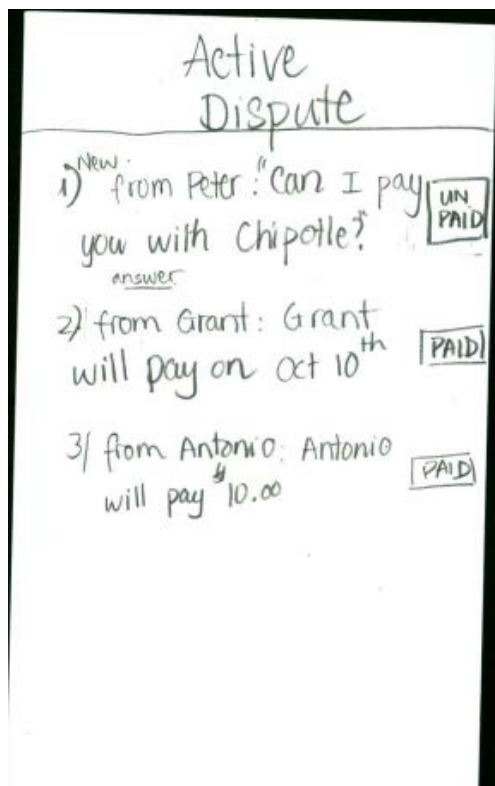 Active
Dispute
New.
1) from Peter: "Can I pay
you with Chipotle?"
UN
PAID
answer
2) from Grant: Grant
will pay on Oct 10th
PAID
3) from Antonio: Antonio
will pay $10.00
PAID